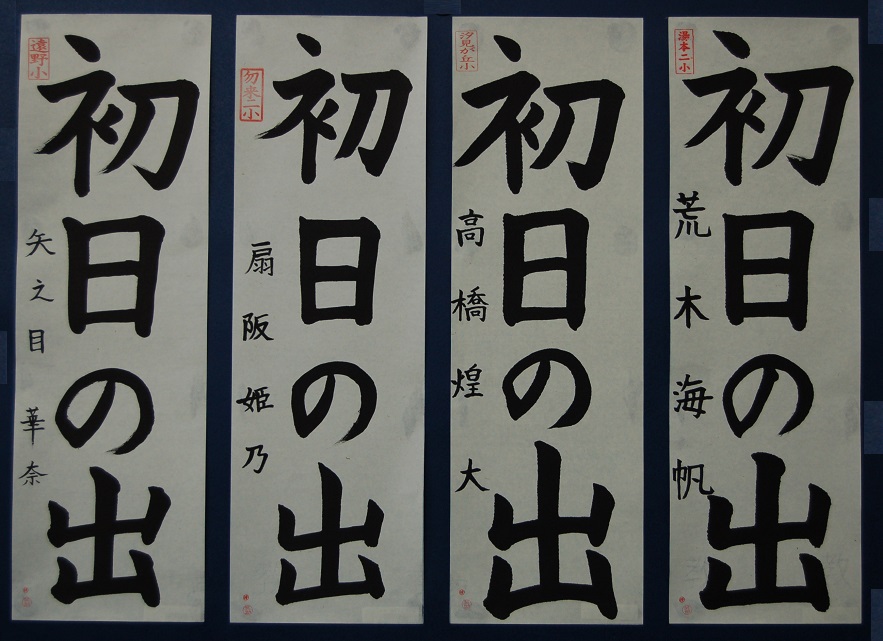 遠野小
初日の出
矢之目 華奈
勿来二小
初日の出
扇阪姫乃
汐見が丘小
初日の出
高橋煌大
湯本二小
初日の出
荒木海帆